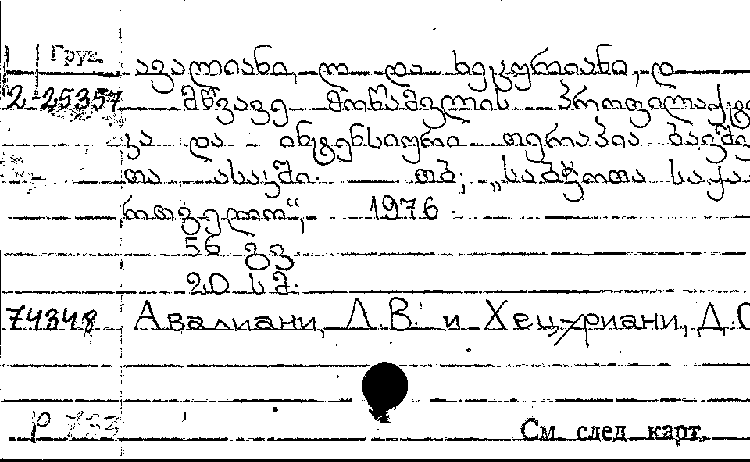 Груз.
ავალიანი, ლ და ხეცურიანი, დ
2-25357 მწვავე მოწამვლის პროფილაქტი
კა და ინტენსიური თერაპია ბავშვ
თა ასაკში. თბ; „საბჭოთა საქა
რთველო“, 1976.
56 გვ
20 სმ.
74348 Авалиани, Л.В. и Хецуриани, Д.
Р 733
См. след. карт.